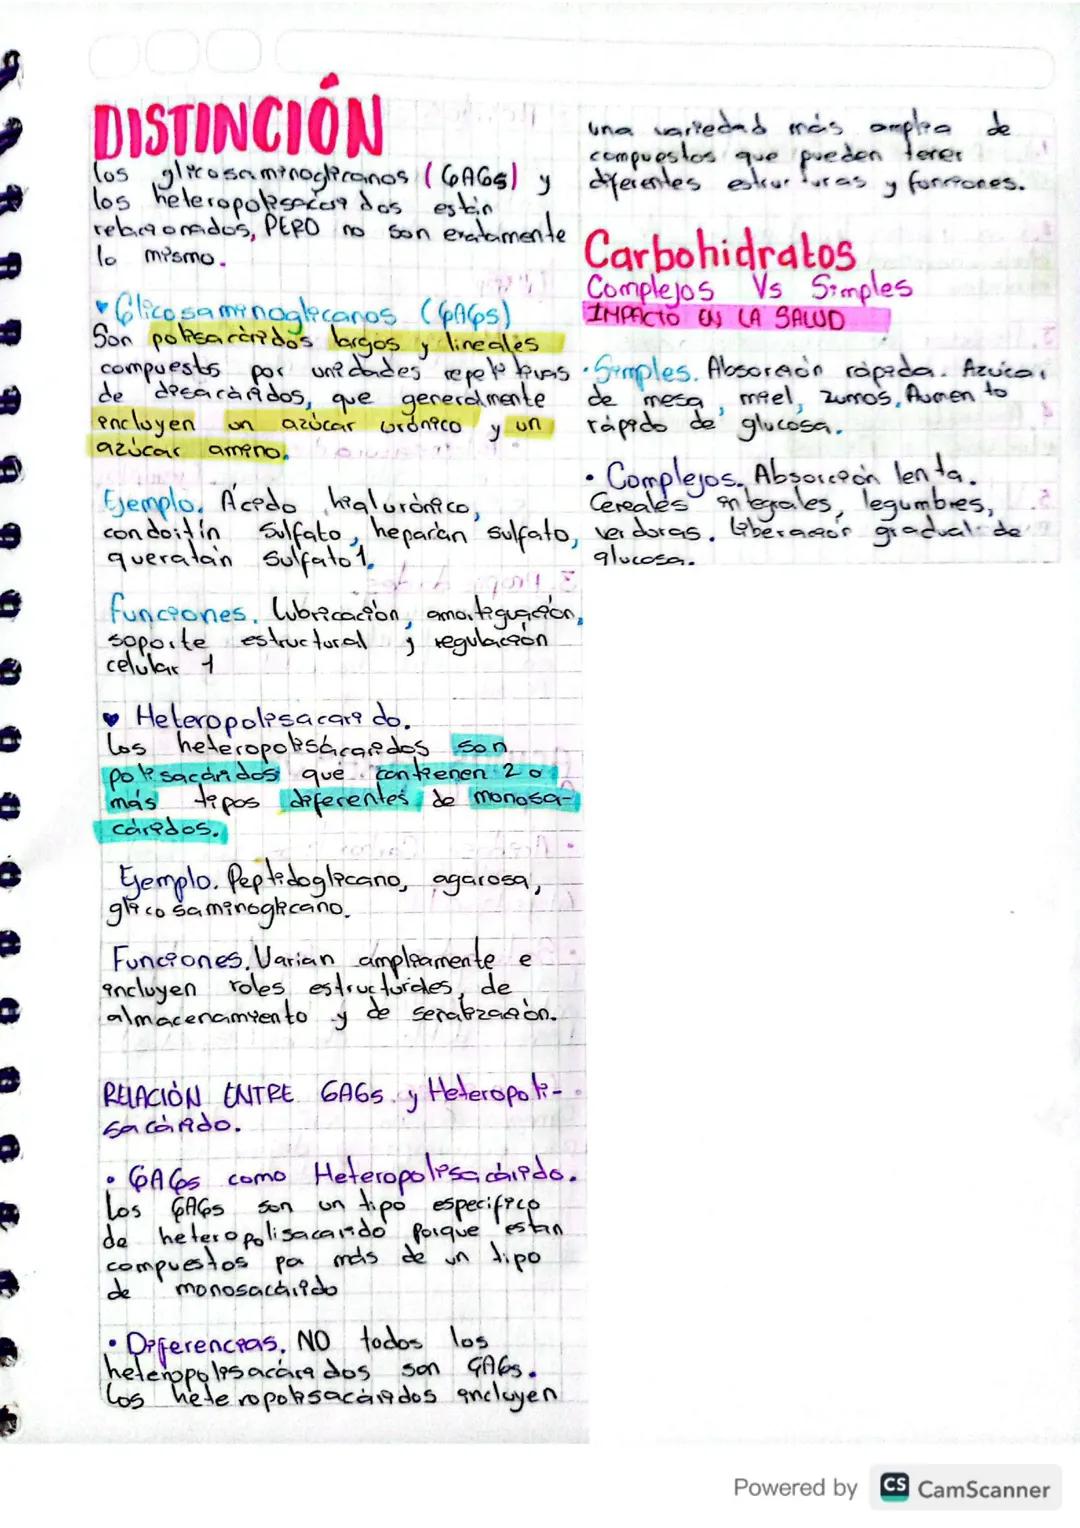 DISTINCIÓN
los glicosaminoglicanos (GAGs) y
los heteropolisacáridos están
relacionados, PERO no son exatamente
lo mismo.
Glicosaminoglicanos (GAGs)
Son polisacáridos largos y lineales
compuests por unidades repetitivas
de disacáridos, que generalmente
incluyen un azúcar urónico y un
azúcar amino.
Ejemplo. Ácido hialurónico,
condoitín sulfato, heparán sulfato,
queratán sulfato 1.
funciones. Lubricación, amortiguación,
soporte estructural y regulación
celular 1
Heteropolisacarido.
Los heteropolisácaridos son
polisacáridos que contienen 2 o
más tipos diferentes de monosa-
cáridos.
Ejemplo. Peptidoglicano, agarosa,
glicosaminoglicano.
Funciones. Varian ampliamente e
incluyen roles estructurales, de
almacenamiento y de señalización.
RELACIÓN ENTRE GAGs y Heteropoli-
sacárido.
• GAGs como Heteropolisacárido.
Los GAGs son un tipo especifico
de heteropolisacarido porque estan
compuestos por más de un tipo
de monosacárido
• Diferencias. NO todos los
heteropolisacáridos son GAGs.
Los heteropolisacáridos incluyen
una variedad más amplia de
compuestos que pueden tener
diferentes estructuras y funciones.
Carbohidratos
Complejos Vs Simples
IMPACTO EN LA SALUD
• Simples. Absorción rápida. Azúcar
de mesa, miel, zumos. Aumento
rápido de glucosa.
• Complejos. Absorción lenta.
Cereales integrales, legumbres,
verduras. liberación gradual de
glucosa.
Powered by CS CamScanner